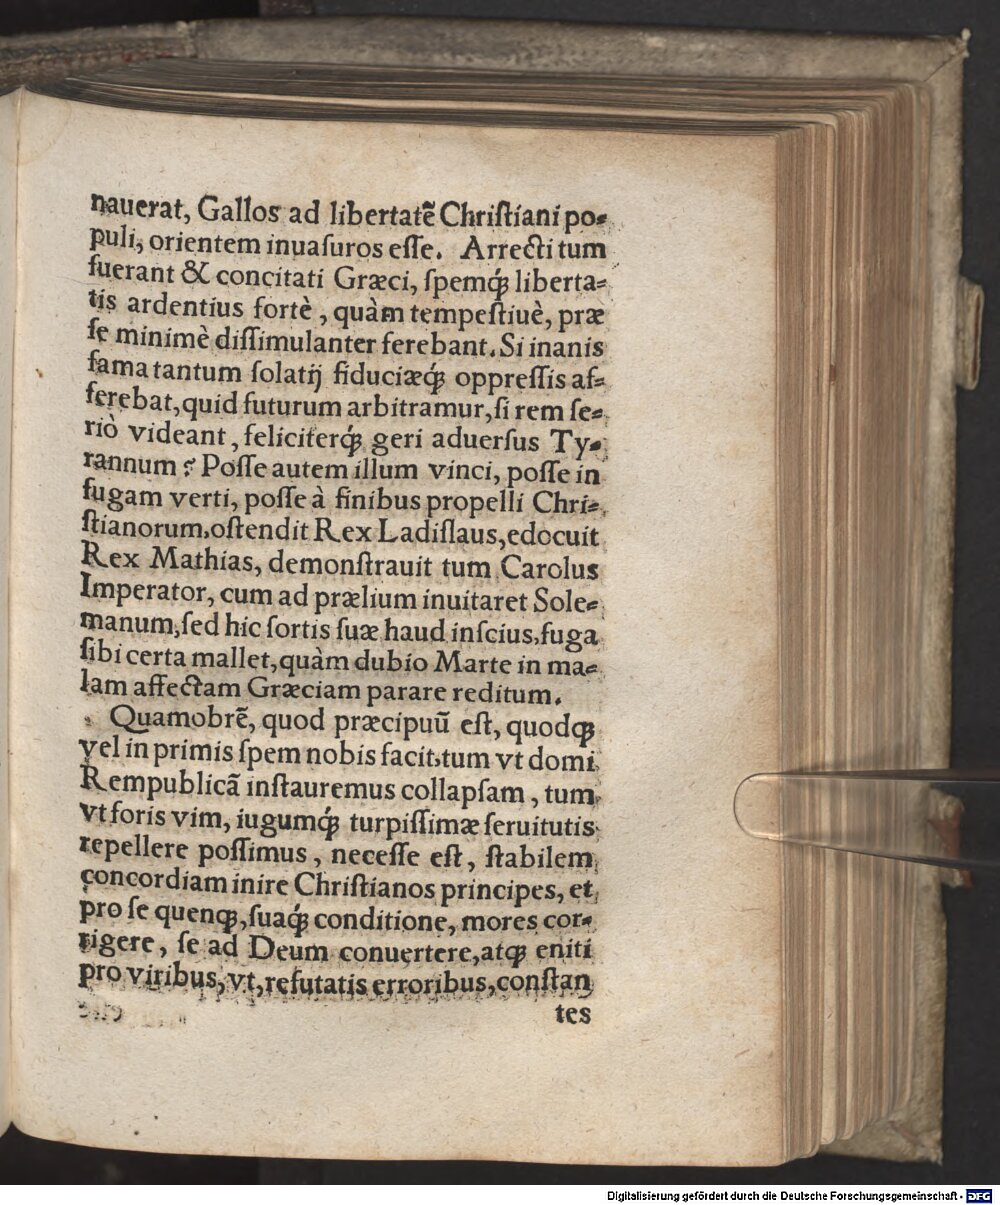 nauerat, Gallos ad libertatē Chriſtiani po⸗
puli, orientem inuaſuros eſſe. Arrecti tum
fuerant & concitati Græci, ſpemq́ꝫ liberta⸗
tis ardentius fortè, quàm tempeſtiuè, præ
ſe minimè diſſimulanter ferebant. Si inanis
fama tantum ſolatij fiduciæq́ꝫ oppreſſis af⸗
ferebat, quid futurum arbitramur, ſi rem ſe⸗
riò videant, feliciterq́ꝫ geri aduerſus Ty⸗
rannum? Poſſe autem illum vinci, poſſe in
fugam verti, poſſe à finibus propelli Chri⸗
ſtianorum, oſtendit Rex Ladiſlaus, edocuit
Rex Mathias, demonſtrauit tum Carolus
Imperator, cum ad prælium inuitaret Sole⸗
manum, ſed hic ſortis ſuæ haud inſcius, fuga
ſibi certa mallet, quàm dubio Marte in ma⸗
lam affectam Græciam parare reditum.
Quamobrē, quod præcipuū eſt, quodqꝫ
vel in primis ſpem nobis facit, tum vt domi
Rempublicā inſtauremus collapſam, tum
vt foris vim, iugumq́ꝫ turpiſſimæ ſeruitutis
repellere poſſimus, neceſſe eſt, ſtabilem
concordiam inire Chriſtianos principes, et
pro ſe quenqꝫ, ſuaq́ꝫ conditione, mores cor⸗
rigere, ſe ad Deum conuertere, atqꝫ eniti
pro viribus, vt, refutatis erroribus, conſtan
tes
Digitalisierung gefördert durch die Deutsche Forschungsgemeinschaft - DFG